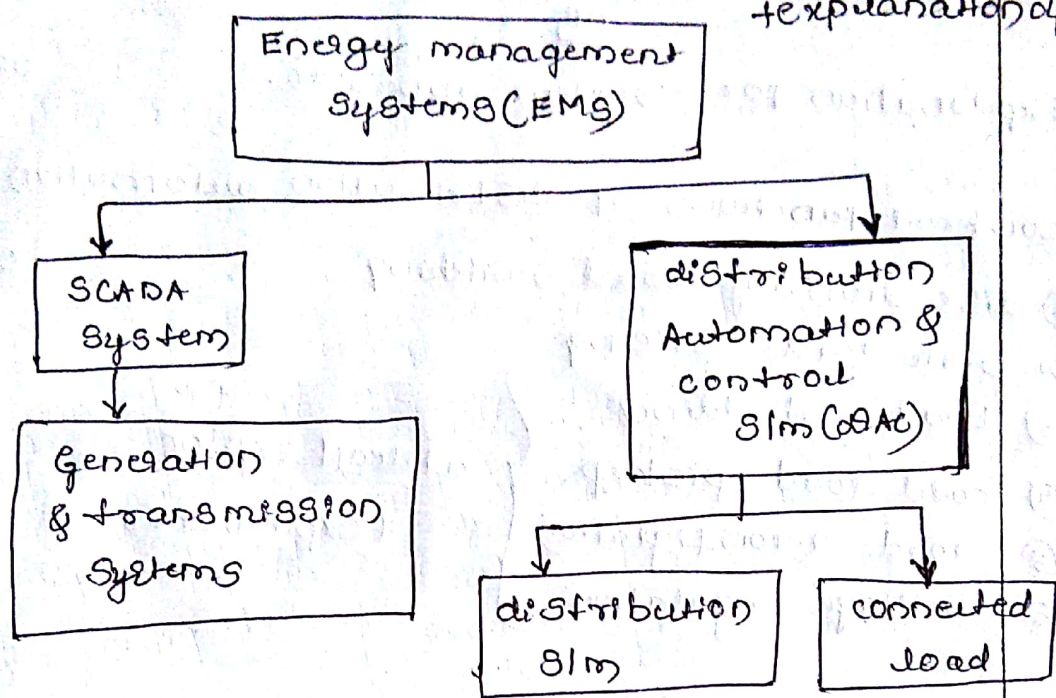 Energy management
systems (EMS)
SCADA
system
distribution
Automation &
control
S/m (DAC)
Generation
& transmission
Systems
distribution
S/m
connected
load